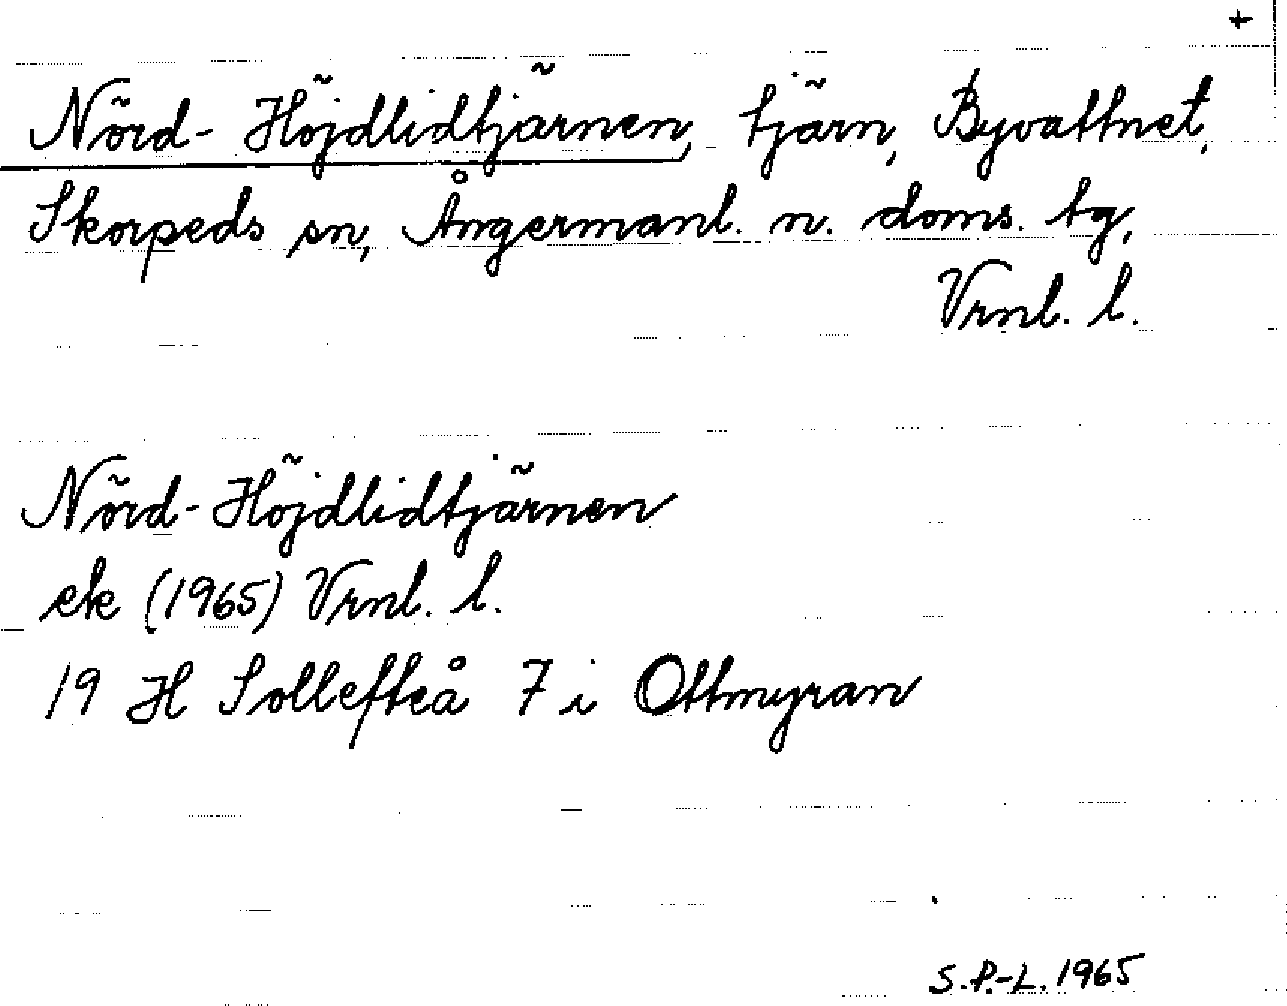 +
Nörd-Höjdlidtjärnen, tjärn, Byvattnet,
Skorpeds sn, Ångermanl. n. doms. tg,
Vrnl. l.
Nörd-Höjdlidtjärnen
ek (1965) Vrnl. l.
19 H Sollefteå 7 i Ottmyran
S.P.-L. 1965